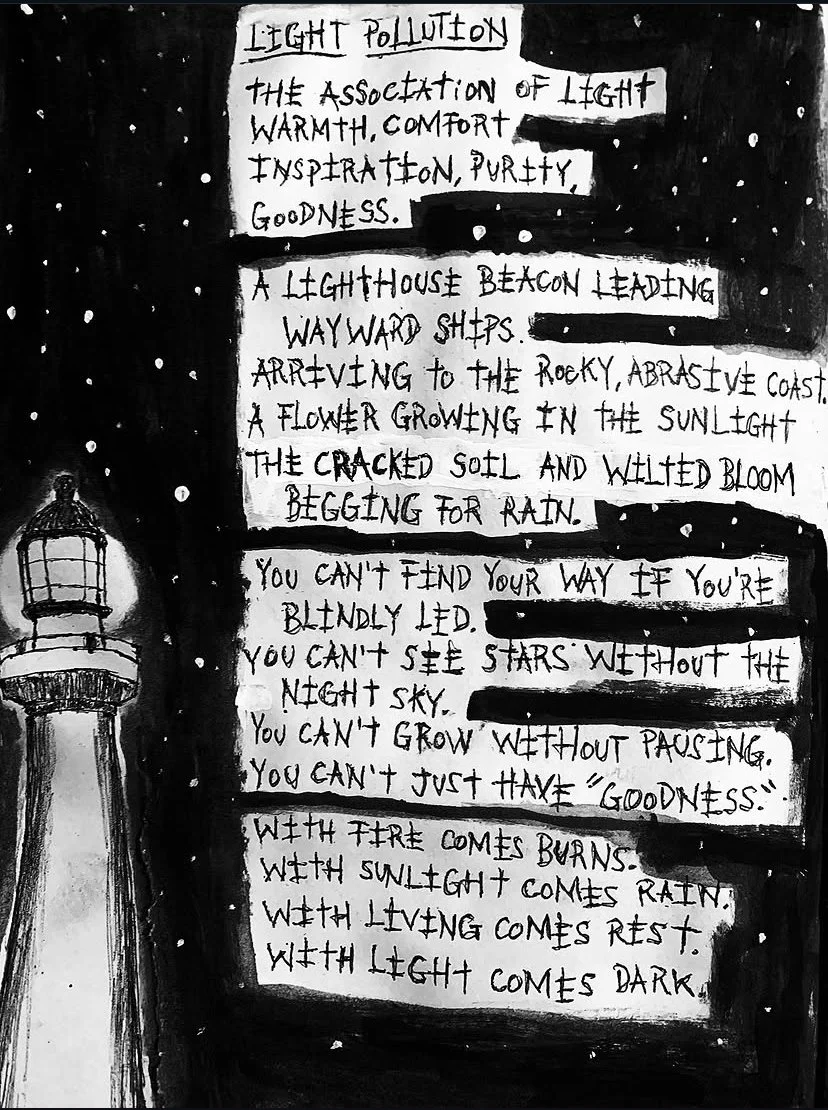 LIGHT POLLUTION
THE ASSOCIATION OF LIGHT
WARMTH, COMFORT
INSPIRATION, PURITY,
GOODNESS.
A LIGHTHOUSE BEACON LEADING
WAYWARD SHIPS.
ARRIVING TO THE ROCKY, ABRASIVE COAST.
A FLOWER GROWING IN THE SUNLIGHT
THE CRACKED SOIL AND WILTED BLOOM
BEGGING FOR RAIN.
YOU CAN'T FIND YOUR WAY IF YOU'RE
BLINDLY LED.
YOU CAN'T SEE STARS WITHOUT THE
NIGHT SKY.
YOU CAN'T GROW WITHOUT PAUSING.
YOU CAN'T JUST HAVE "GOODNESS."
WITH FIRE COMES BURNS.
WITH SUNLIGHT COMES RAIN.
WITH LIVING COMES REST.
WITH LIGHT COMES DARK.